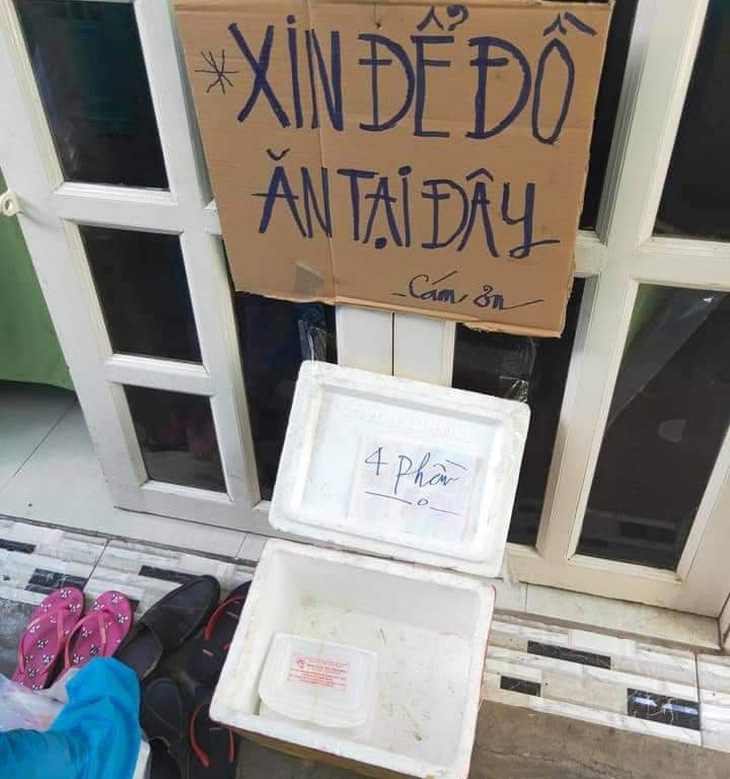 *XIN ĐỂ ĐỒ
ĂN TẠI ĐÂY
- Cám ơn
4 phần